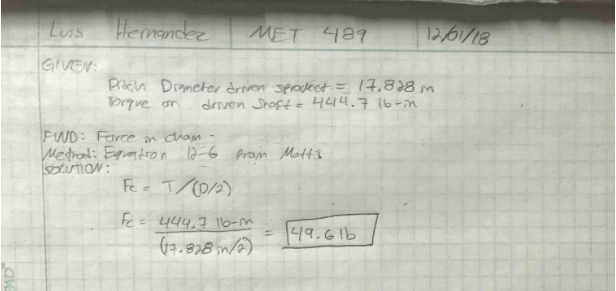 Luis Hernandez MET 489 12/01/18
GIVEN:
Pitch Diameter driven sprocket = 17.828 in
Torque on driven Shaft = 444.7 lb-in
FIND: Force in chain -
Method: Equation 12-6 from Mott's
SOLUTION:
Fc = T/(D/2)
Fc = 444.7 lb-in
(17.828 in/2)
= 49.6 lb